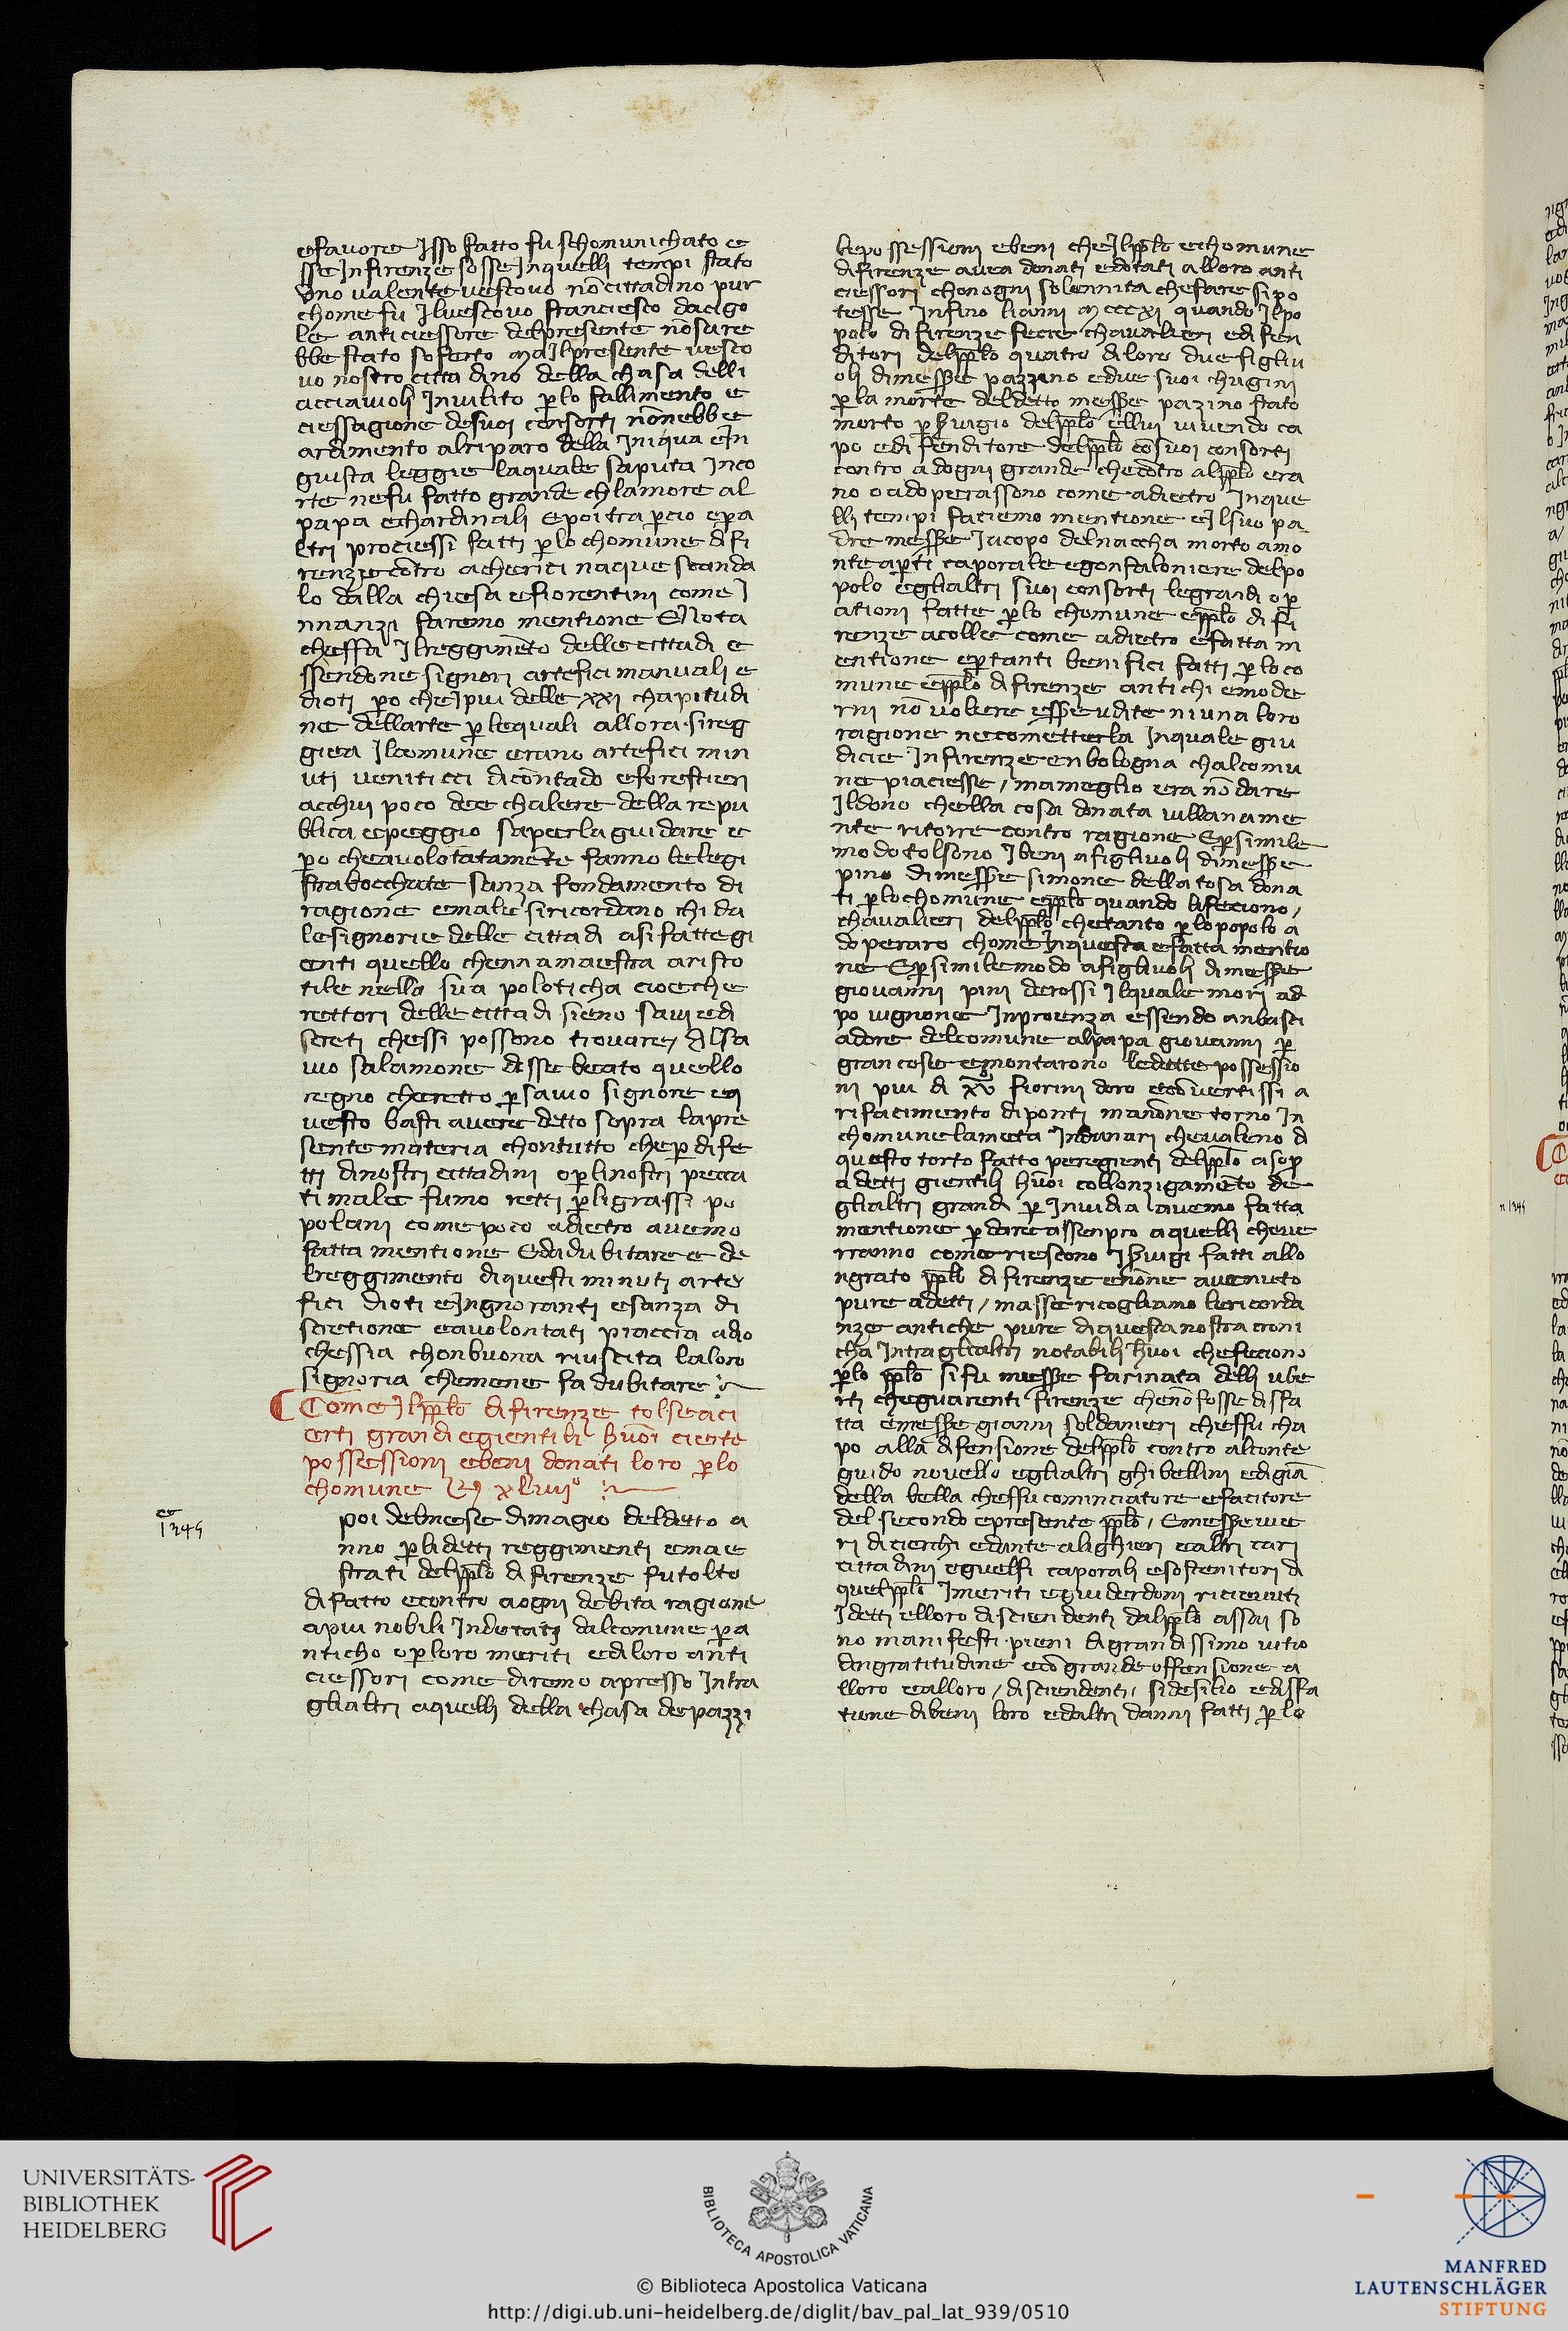 efavore Isso fatto fu schomunichato e
sse Infirenze fosse Inquelli tempi stato
vno valente vescovo nõ cittadino pur
chome fu Ilvescovo franciesco dacigo
le anticiessore delpresente nõ sare
bbe stato soferto Ma Ilpresente vesco
vo nostro cittadino della chasa delli
acciaiuoli Invilito p̱lo fallimento e
ciessagione desuoi consorti nõnebbe
ardimento alriparo della Iniqua eIn
giusta leggie laquale saputa Inco
rte nefu fatto grande chlamore al
papa echardinali Epoi tra p̱cio ep̱a
ltri prociessi fatti p̱lo chomune difi
renze cõtro acherici naque scanda
lo dalla chiesa efiorentini come I
nnanzi faremo mentione E Nota
cheffa Ilreggimẽto delle cittadi e
ssendone signori artefici manuali e
dioti p̱o cheIpiu delle xxi chapitudi
ne dellarte p̱lequali allora sireg
giea Ilcomune erano artefici min
uti veniticci dicõntado eforestieri
acchui poco dee chalere della repu
blica epeggio saperla guidare e
p̱o cheavolotatamẽte fanno lelegi
strabocchate sanza fondamento di
ragione emale siricordano chi da
lesignorie delle cittadi asifattegi
enti quello chennamaestra aristo
tile nella sua poloticha cioeche
rettori delle cittadi sieno savi edi
screti chessi possono trovare, Elsa
uio salamone disse beato quello
regno cheretto p̱savio signore eq
uesto basti avere detto sopra lapre
sente materia chontutto chep̱ dife
tti dinostri cittadini op̱linostri pecca
ti male fumo retti p̱ligrassi po
polani comepoco adietro avemo
fatta mentione Edadubitare e de
lreggimento diquesti minuti arte
fici dioti eIngnoranti esanza di
scretione eavolontati piaccia adio
chessia chonbuona riuscita laloro
signoria chemene fa dubitare
Come Ilpp̱lo difirenze tolseaci
erti grandi egientili huoĩ cierte
possessioni ebeni donati loro p̱lo
chomune xliiiiº
er
1345
poi delmese dimagio deldetto a
nno p̱lidetti reggimenti emae
strati delpp̱lo difirenze futolto
difatto econtro aogni debita ragione
apiu nobili Indotati dalcomune p̱a
nticho op̱loro meriti ediloro anti
ciessori come diremo apresso Intra
glialtri aquelli della chasa depazzi
lepossessioni ebeni cheIlpp̱lo echomune
difirenze avea donati edotati alloro anti
ciessori chonogni solennita chefare sipo
tesse Infino lianni Mcccxi quando Ilpo
polo difirenze fecie chavalieri edifen
ditori delpp̱lo quatro diloro due figliu
oli dimess̱e pazzino edue suoi chugini
p̱la morte deldetto mess̱e pazino stato
morto p̱ s̱vigio delpp̱lo ellui vivendo ca
po edifenditore delpp̱lo cõsuoi consorti
contro adogni grande checõtro alpp̱lo era
no oadoperassono come adietro Inque
lli tempi faciemo mentione eIlsuo pa
dre mess̱e Iacopo delnaccha morto amo
nteap̱ti caporale egonfaloniere delpo
polo eglialtri suoi consorti legrandi op̱
ationi fatte p̱lo chomune epp̱lo difi
renze acolle come adietro efatta m
entione ep̱tanti benifici fatti p̱loco
mune epp̱lo difirenze antichi emode
rni nõ vollere ess̱e udite niuna loro
ragione necometterla Inquale giu
dicie Infirenze enbologna chalcomu
ne piaciesse, mameglio era nõ dare
Ildono chella cosa donata villaname
nte ritorre contro ragione Ep̱simile
modo tolsono Ibeni afigliuoli dimess̱e
pino dimess̱e simone della tosa dona
ti p̱lochomune epp̱lo quando lifeciono,
chavalieri delpp̱lo chetanto p̱lopopolo a
doperaro chome Inquesta efatta mentio
ne Ep̱similemodo afigliuoli dimess̱e
giovanni pini derossi Ilquale mori ad
po vignone Inproenza essendo anbasci
adore delcomune alpapa giovanni p̱
gran cose emontarono ledette possessio
ni piu di xv̄ fiorini doro ecõvertissi a
rifacimento diponti manõne torno In
chomunelameta Indanari chevaleno di
questo torto fatto peregienti delpp̱lo asop̱
adetti gientili huoĩ collonzigamẽto de
glialtri grandi p̱ Invidia lavemo fatta
mentione p̱dare assenpro aquelli cheve
rranno comeriescono Is̱vigi fatti allo
ngrato pp̱lo difirenze enõne avenuto
pure adetti, masse ricogliamo lericorda
nze antiche pure diquesta nostra croni
cha Intraglialtri notabili huoi chefeciono
p̱lo pp̱lo sifu mess̱e farinata delli ube
rti cheguarenti firenze chenõfosse disfa
tta emess̱e gianni soldanieri cheffu cha
po alla difensione delpp̱lo contro alconte
guido novello eglialtri ghibellini edigiã
della bella cheffu cominciatore efacitore
del secondo epresente pp̱lo, Emess̱e ve
ri dicierchi edante alighieri ealtri cari
cittadini eguelfi caporali esostenitori di
quelpp̱lo Imeriti eguiderdoni ricieuti
Idetti elloro disciendenti dalpp̱lo assai so
no manifesti pieni digrandissimo vitio
dingratitudine ecõ grande offensione a
lloro ealloro, disciendenti, sidesilio edisfa
tione dibeni loro edaltri danni fatti p̱lo
n 1345
UNIVERSITÄTS-
BIBLIOTHEK
HEIDELBERG
BIBLIOTECA APOSTOLICA VATICANA
© Biblioteca Apostolica Vaticana
http://digi.ub.uni-heidelberg.de/diglit/bav_pal_lat_939/0510
MANFRED
LAUTENSCHLÄGER
STIFTUNG